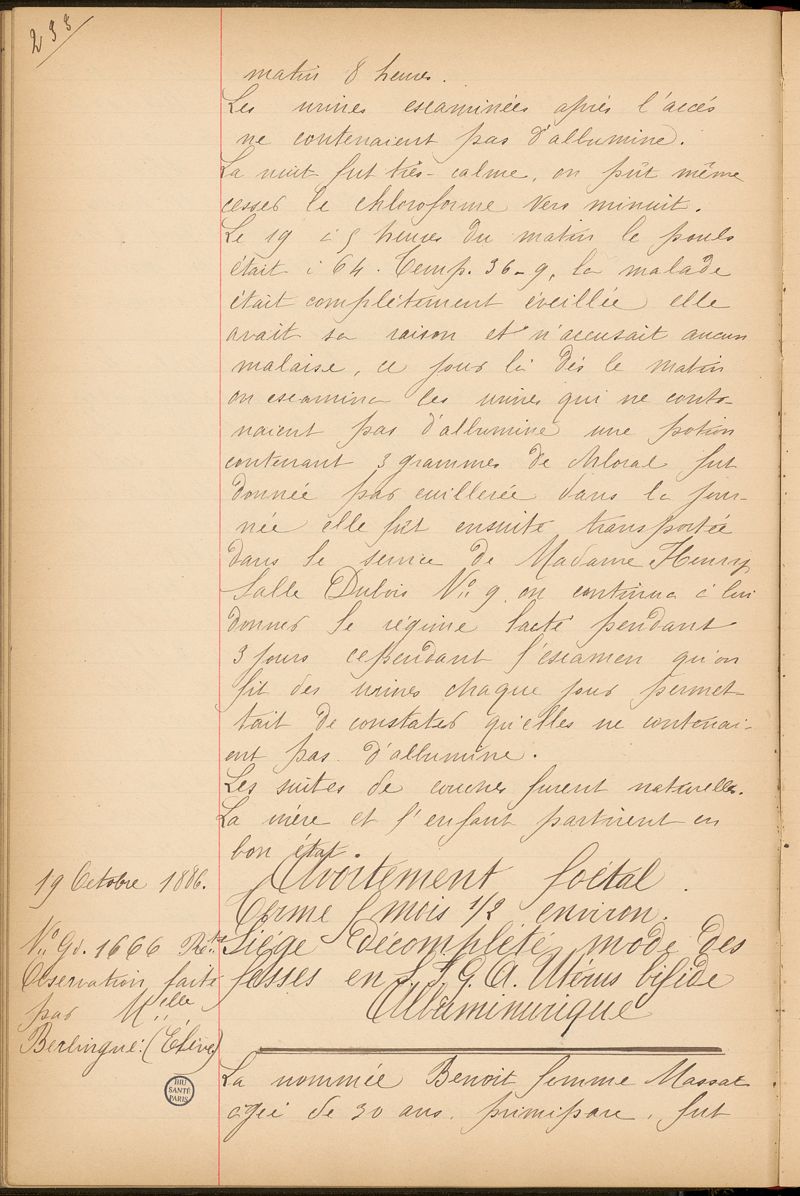 233
matin 8 heures.
Les urines escaminées après l'accés
ne contenaient pas d'allumine.
La nuit fut très-calme, on pût même
cesser le chloroforme vers minuit.
Le 19 à 5 heures du matin le pouls
était à 64. Temp. 36-9, la malade
était complètement éveillée, elle
avait sa raison et n'accusait aucun
malaise, ce jour là dès le matin
on escamina les urines qui ne conte-
naient pas d'allumine une potion
contenant 3 grammes de chloral fut
donnée par cuillerée dans la jour-
née elle fut ensuite transportée
dans le service de Madame Henry
Salle Dubois No 9 on continua à lui
donner le régime lacté pendant
3 jours cependant l'escamen qu'on
fit des urines chaque jour permet-
tait de constater qu'elles ne contenai-
ent pas d'allumine.
Les suites de couches furent naturelles.
La mère et l'enfant partirent en
bon état.
19 Octobre 1886.
No Gd. 1666
Observation faite
par Melle
Berlingue: (Elève)
Avortement foetal.
Terme 5 mois 1/2 environ.
Siège décomplété, mode des
fesses en S.I.G.A. Utérus bifide
Albuminurique
La nommée Benoit femme Massat
agée de 30 ans, primipare, fut
BIU
SANTÉ
PARIS